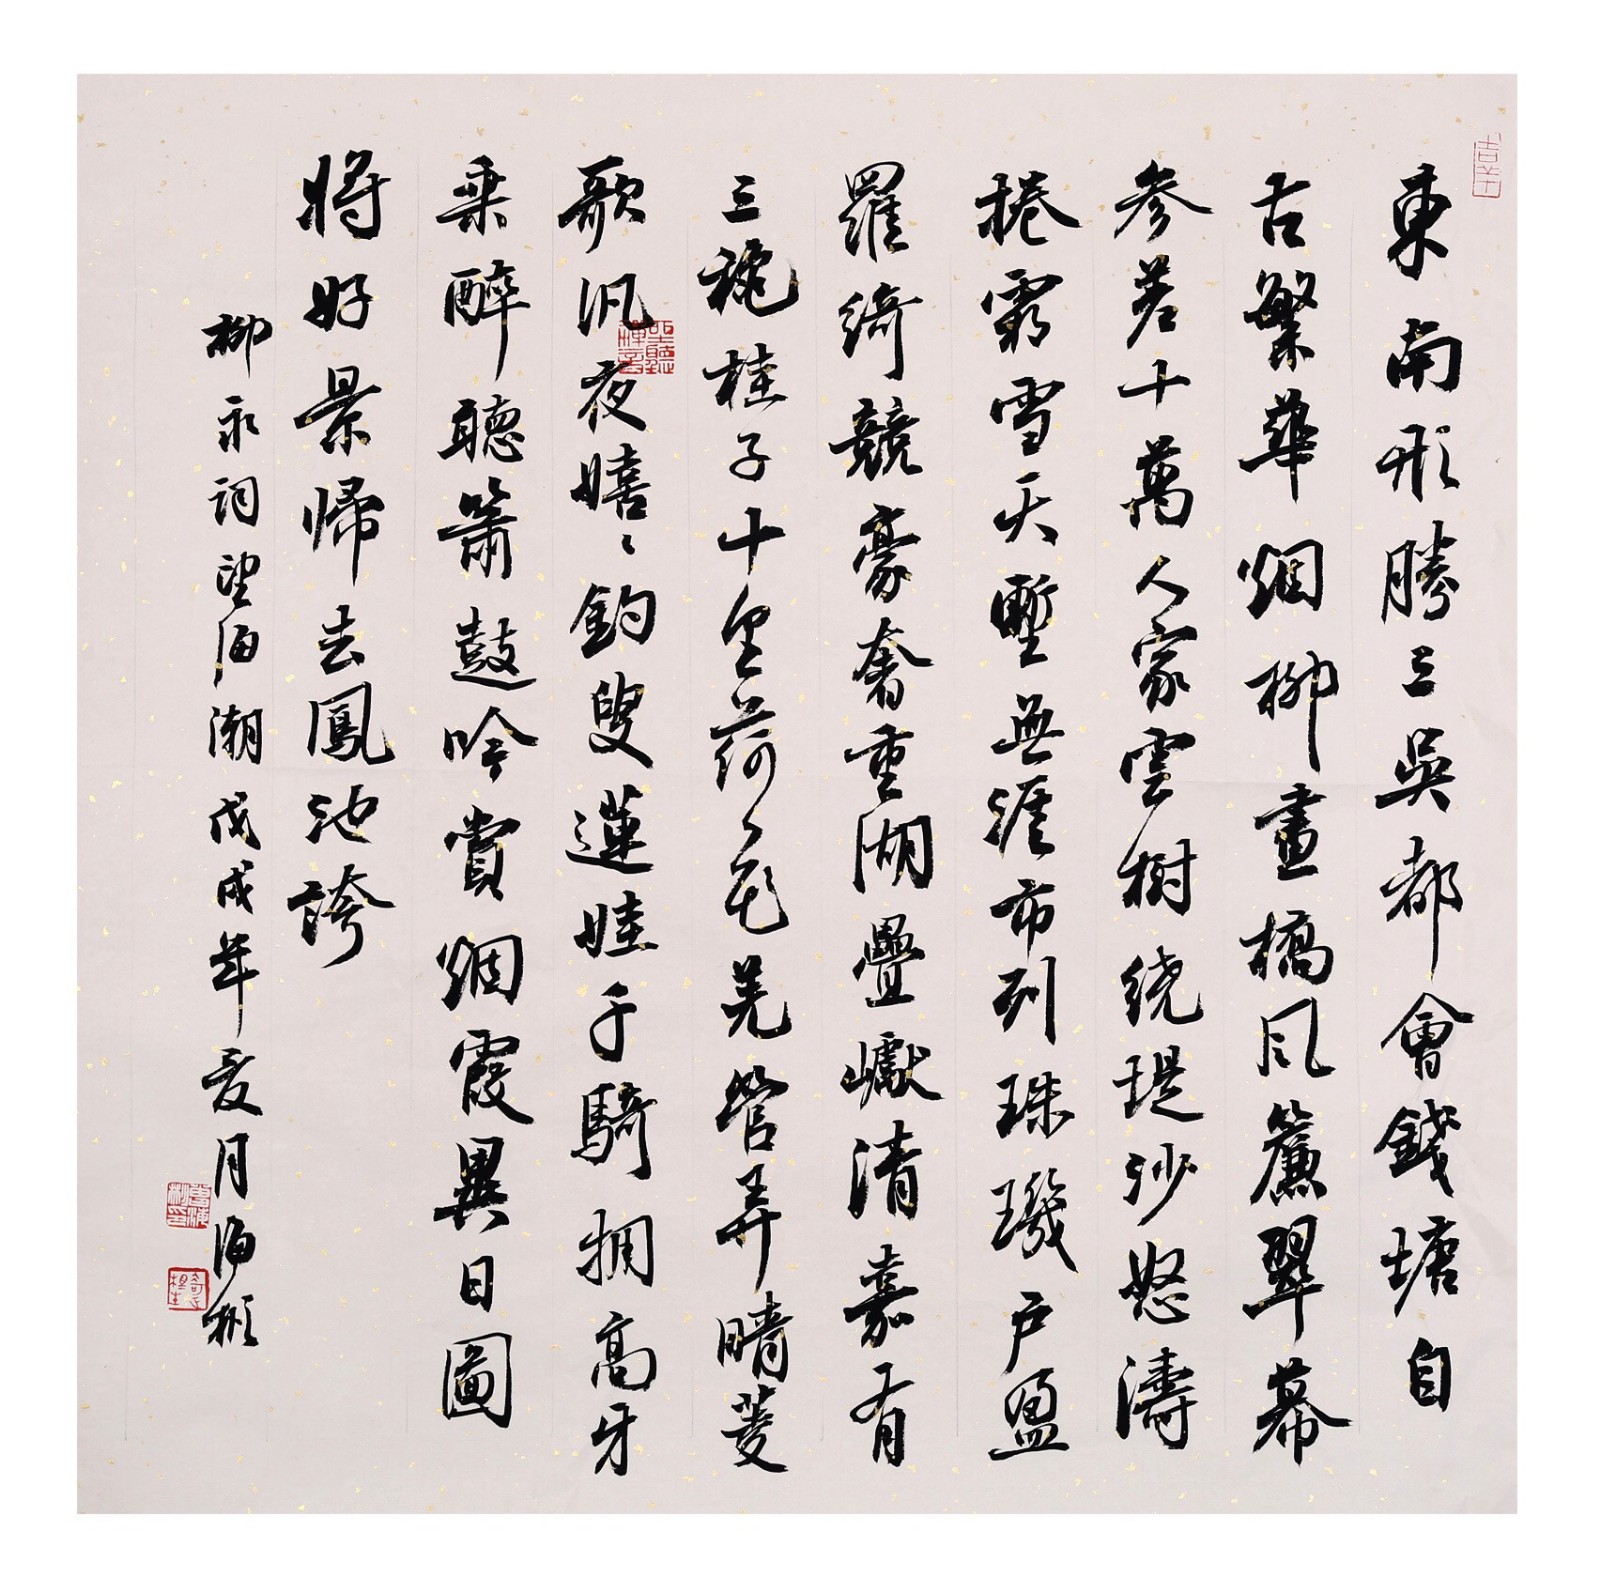 東南形勝三吳都會錢塘自
古繁華烟柳畫橋風簾翠幕
參差十萬人家雲樹繞堤沙怒濤
捲霜雪天塹無涯市列珠璣戶盈
羅綺競豪奢重湖疊巘清嘉有
三秋桂子十里荷花羌管弄晴菱
歌汎夜嬉〻釣叟蓮娃千騎拥高牙
乘醉聽簫鼓吟賞烟霞異日圖
將好景歸去鳳池誇
柳永詞望海潮戊戌年夏月海彬